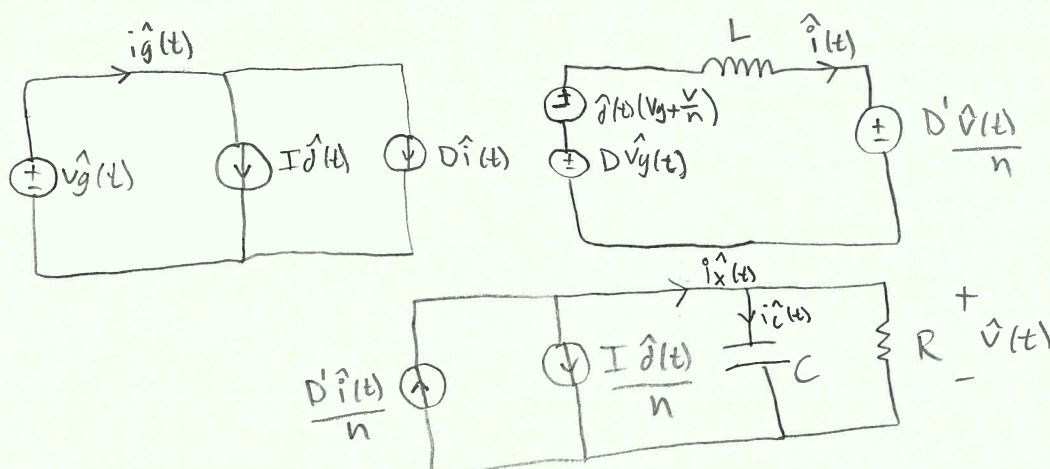 îg(t)
v̂g(t)
I d̂(t)
D î(t)
L
î(t)
d̂(t)(Vg + V/n)
D v̂g(t)
D' v̂(t)/n
îx(t)
îc(t)
D' î(t)/n
I d̂(t)/n
C
R
+
v̂(t)
-